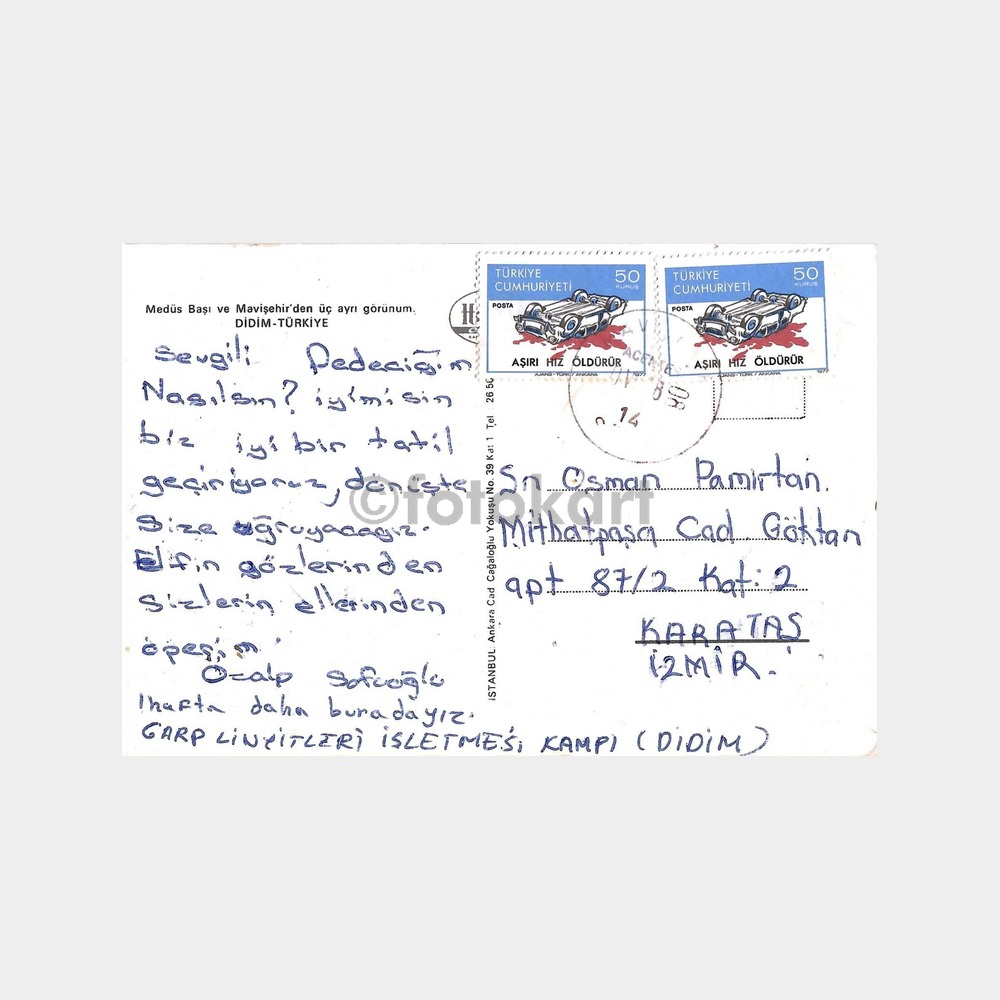 Medüs Başı ve Mavişehir'den üç ayrı görünum.
DİDİM-TÜRKİYE
Sevgili Dedeciğim
Nasılsın? iyimisin
biz iyi bir tatil
geçiriyoruz, dönüşte
Size uğruyacağız.
Elfin gözlerinden
sizlerin ellerinden
öpeşim.
Özalp Sofuoğlu
1 hafta daha buradayız.
GARP LİNYİTLERİ İŞLETMESİ KAMPI (DİDİM)
İSTANBUL Ankara Cad Cağaloğlu Yokuşu No. 39 Kat 1 Tel 26 50
TÜRKİYE
CUMHURİYETİ
50
KURUŞ
POSTA
AŞIRI HIZ ÖLDÜRÜR
AJANS-TÜRK / ANKARA
TÜRKİYE
CUMHURİYETİ
50
KURUŞ
POSTA
AŞIRI HIZ ÖLDÜRÜR
AJANS-TÜRK / ANKARA 1977
14
80
Sn Osman Pamirtan.
Mithatpaşa Cad Göktan
apt 87/2 Kat: 2
KARATAŞ
İZMİR.
©fotokart